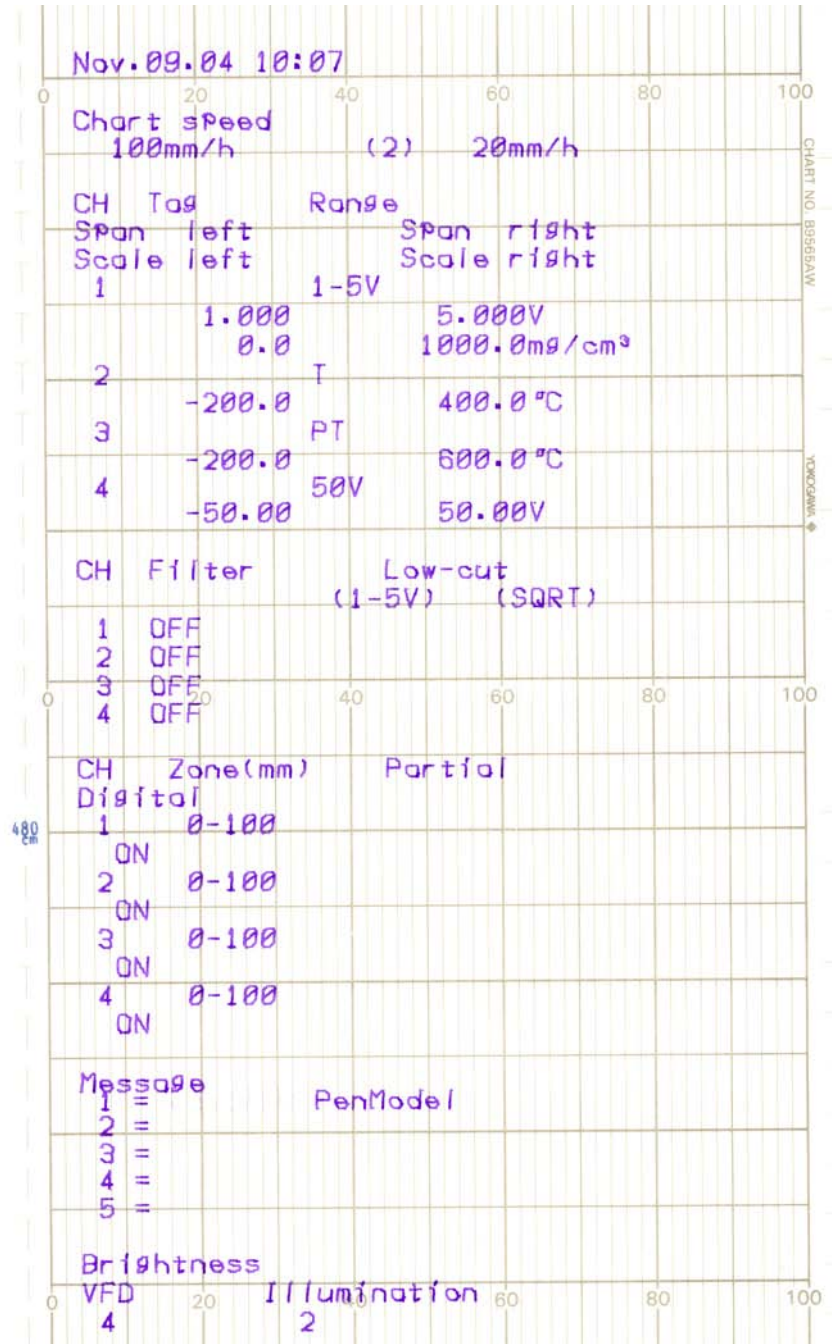 Nov.09.04 10:07
0 20 40 60 80 100
Chart speed
100mm/h (2) 20mm/h
CHART NO. B9565AW
CH Tag Range
Span left Span right
Scale left Scale right
1 1-5V
1.000 5.000V
0.0 1000.0mg/cm³
2 T
-200.0 400.0°C
3 PT
-200.0 600.0°C
4 50V
-50.00 50.00V
YOKOGAWA
CH Filter Low-cut
(1-5V) (SQRT)
1 OFF
2 OFF
3 OFF
0 20 40 60 80 100
4 OFF
CH Zone(mm) Partial
Digital
480 cm
1 0-100
ON
2 0-100
ON
3 0-100
ON
4 0-100
ON
Message
1 = PenModel
2 =
3 =
4 =
5 =
Brightness
VFD Illumination
0 20 60 80 100
4 2